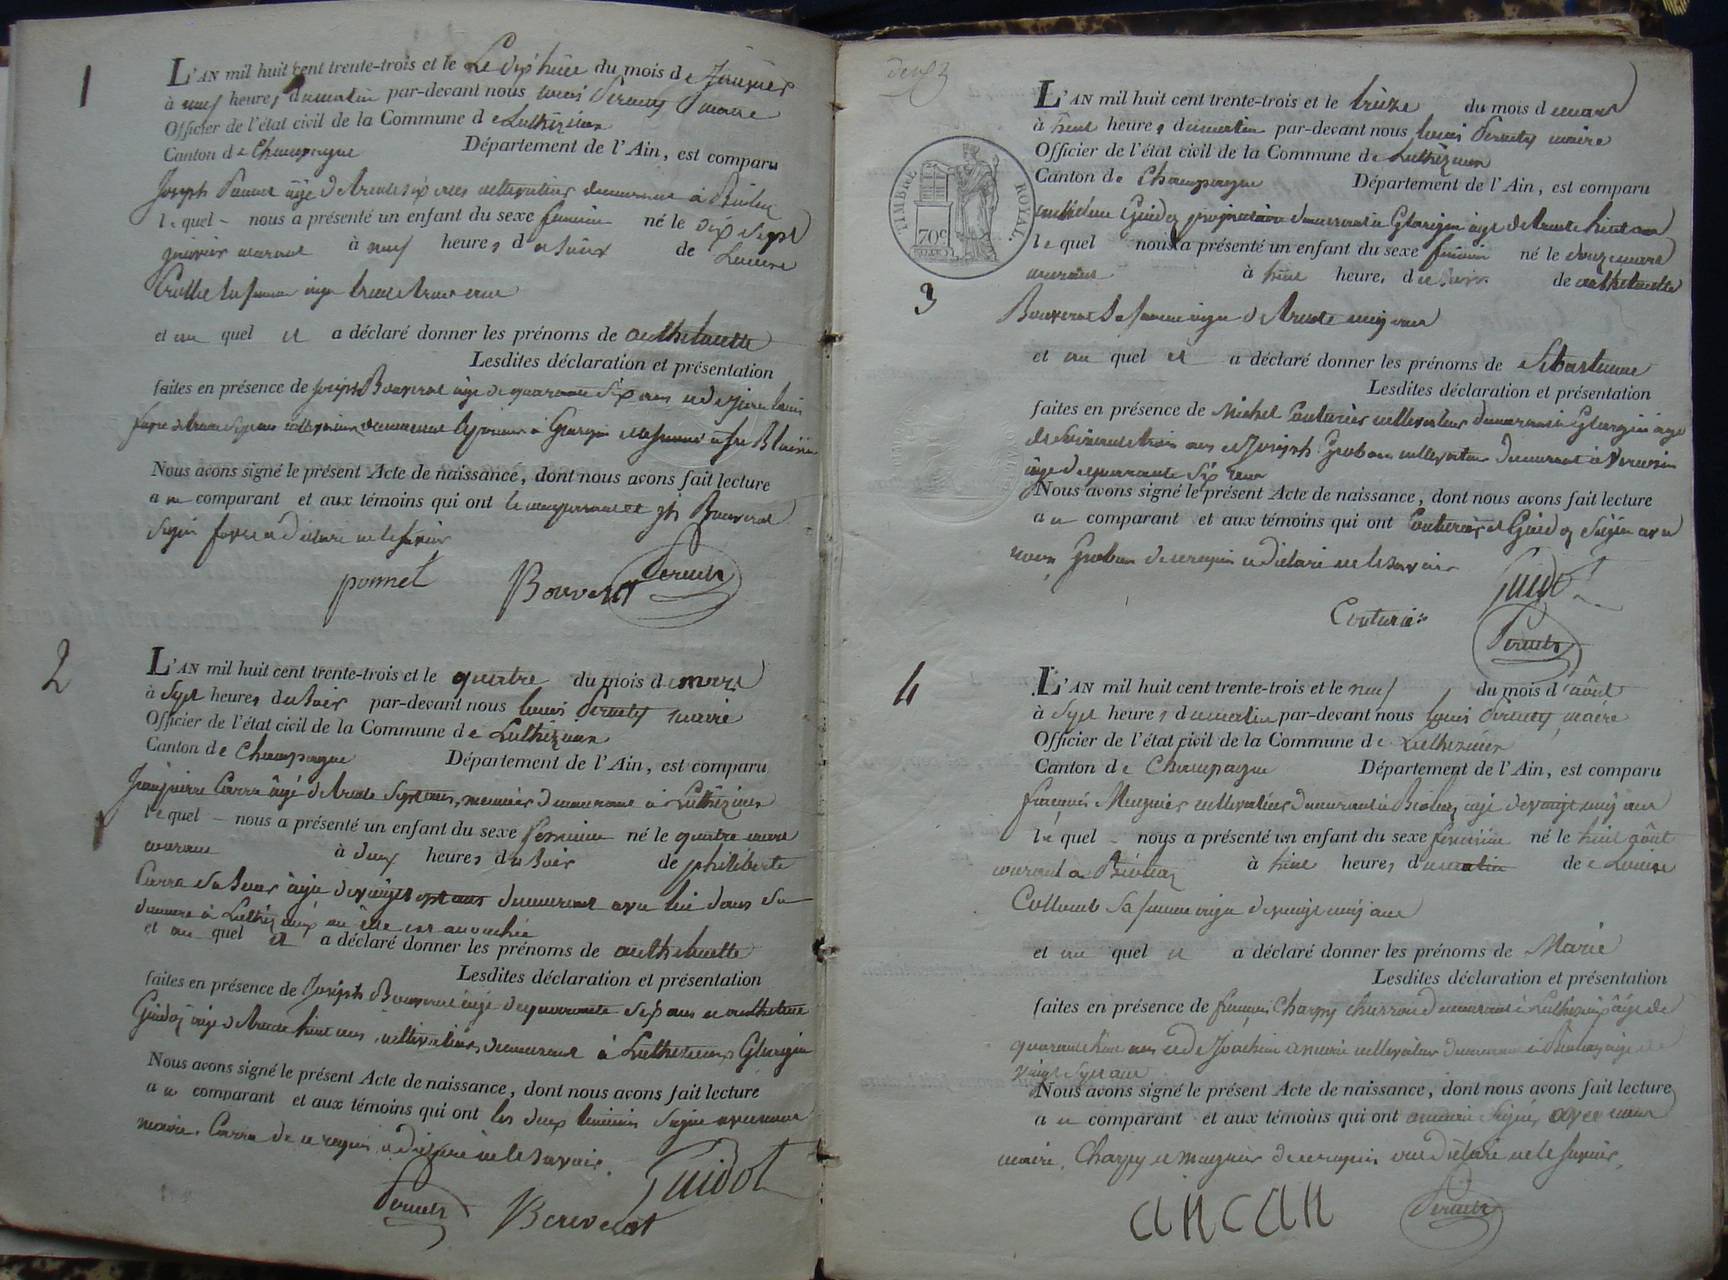 1
L'AN mil huit cent trente-trois et le Le dix huit du mois de Janvier
à neuf heures du matin par-devant nous Louis Peruely maire
Officier de l'état civil de la Commune de Luthézieu
Canton de Champagne Département de l'Ain, est comparu
Joseph Ponnet âgé de trente six ans cultivateur demeurant à
lequel nous a présenté un enfant du sexe féminin né le dix sept
janvier courant à neuf heures du soir de Louise
sa femme âgée trente trois ans
et au quel il a déclaré donner les prénoms de anthelmette
Lesdites déclaration et présentation
faites en présence de joseph Bouverat âgé de quarante six ans et de
favre cultivateurs demeurant le premier à
Nous avons signé le présent Acte de naissance, dont nous avons fait lecture
au comparant et aux témoins qui ont le comparant et jh Bouverat
signé favre a déclaré ne le savoir
ponnet Bouverat
2
L'AN mil huit cent trente-trois et le quatre du mois de mars
à sept heures du soir par-devant nous Louis Peruely maire
Officier de l'état civil de la Commune de Luthézieu
Canton de Champagne Département de l'Ain, est comparu
Jean pierre Carra âgé de trente sept ans, meunier demeurant à Luthézieu
lequel nous a présenté un enfant du sexe féminin né le quatre mars
courant à deux heures du soir de philiberte
Carra sa soeur âgée de vingt sept ans demeurant avec lui dans sa
demeure à Luthézieu où elle est accouchée
et au quel il a déclaré donner les prénoms de anthelmette
Lesdites déclaration et présentation
faites en présence de Joseph Bouverat âgé de quarante six ans et anthelme
Guidoz âgé de trente huit ans, cultivateurs demeurant à Luthézieu
Nous avons signé le présent Acte de naissance, dont nous avons fait lecture
au comparant et aux témoins qui ont les deux témoins signé avec nous
maire. Carra de ce requis a déclaré ne le savoir.
Guidot
Bouverat
TIMBRE ROYAL.
70c
3
L'AN mil huit cent trente-trois et le treize du mois de mars
à huit heures du matin par-devant nous Louis Peruely maire
Officier de l'état civil de la Commune de Luthézieu
Canton de Champagne Département de l'Ain, est comparu
anthelme Guidoz propriétaire demeurant à âgé de trente huit ans
lequel nous a présenté un enfant du sexe féminin né le douze mars
courant à huit heures du soir de anthelmette
Bouverat sa femme âgée de trente cinq ans
et au quel il a déclaré donner les prénoms de Sébastienne
Lesdites déclaration et présentation
faites en présence de Michel Couturier cultivateur demeurant à âgé
de soixante trois ans et Joseph cultivateur demeurant à
âgé de quarante six ans
Nous avons signé le présent Acte de naissance, dont nous avons fait lecture
au comparant et aux témoins qui ont Couturier et Guidoz signé avec
nous, de ce requis a déclaré ne le savoir
Guidot
Couturier
4
L'AN mil huit cent trente-trois et le neuf du mois d'août
à sept heures du matin par-devant nous Louis Peruely, maire
Officier de l'état civil de la Commune de Luthézieu
Canton de Champagne Département de l'Ain, est comparu
françois Magnier cultivateur demeurant à Bioléaz âgé de vingt cinq ans
lequel nous a présenté un enfant du sexe féminin né le huit août
courant à Bioléaz à huit heures du matin de Louise
Collomb sa femme âgée de vingt cinq ans
et au quel il a déclaré donner les prénoms de Marie
Lesdites déclaration et présentation
faites en présence de françois Charpy charron demeurant à Luthézieu âgé de
quarante huit ans et de Joachim cultivateur demeurant à Bioléaz âgé de
vingt sept ans
Nous avons signé le présent Acte de naissance, dont nous avons fait lecture
au comparant et aux témoins qui ont signé, avec nous
maire. Charpy et magnier de ce requis ont déclaré ne le savoir.